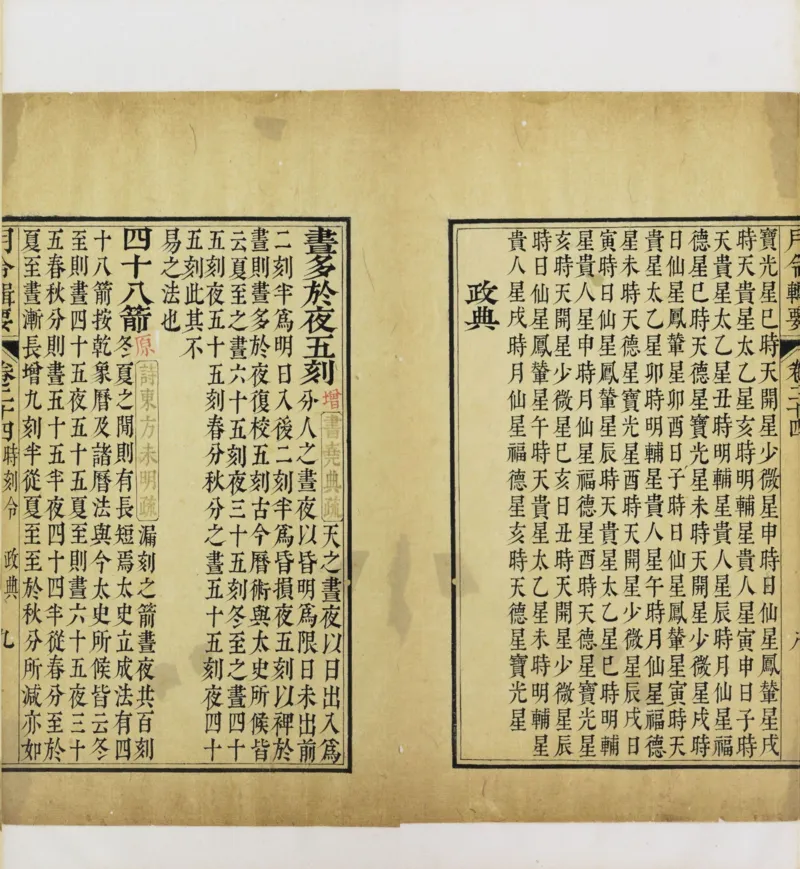 月令輯要 卷二十四 八
寶光星巳時天開星少微星申時日仙星鳳輦星戌
時天貴星太乙星亥時明輔星貴人星寅申日子時
天貴星太乙星丑時明輔星貴人星辰時月仙星福
德星巳時天德星寶光星未時天開星少微星戌時
日仙星鳳輦星卯酉日子時日仙星鳳輦星寅時天
貴星太乙星卯時明輔星貴人星午時月仙星福德
星未時天德星寶光星酉時天開星少微星辰戌日
寅時日仙星鳳輦星辰時天貴星太乙星巳時明輔
星貴人星申時月仙星福德星酉時天德星寶光星
亥時天開星少微星巳亥日丑時天開星少微星辰
時日仙星鳳輦星午時天貴星太乙星未時明輔星
貴人星戌時月仙星福德星亥時天德星寶光星
政典
晝多於夜五刻 增 書堯典疏 天之晝夜以日出入爲
分人之晝夜以昏明爲限日未出前
二刻半爲明日入後二刻半爲昏損夜五刻以禆於
晝則晝多於夜復校五刻古今曆術與太史所候皆
云夏至之晝六十五刻夜三十五刻冬至之晝四十
五刻夜五十五刻春分秋分之晝五十五刻夜四十
五刻此其不
易之法也
四十八箭 原 詩東方未明疏 漏刻之箭晝夜共百刻
冬夏之間則有長短焉太史立成法有四
十八箭按乾象曆及諸曆法與今太史所候皆云冬
至則晝四十五夜五十五夏至則晝六十五夜三十
五春秋分則晝五十五半夜四十四半從春分至於
夏至晝漸長增九刻半從夏至至於秋分所減亦如
月令輯要 卷二十四 時刻令 政典 九